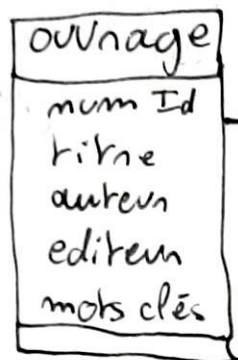 ouvrage
num Id
titre
auteur
editeur
mots clés